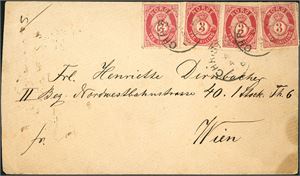 NORGE NORGE NORGE NORGE
3 3 3 3
Frl. Henriette Dirnbacher
II Bez. Nordwestbahnstrasse 40. I Stock. Th 6
Wien
fr.